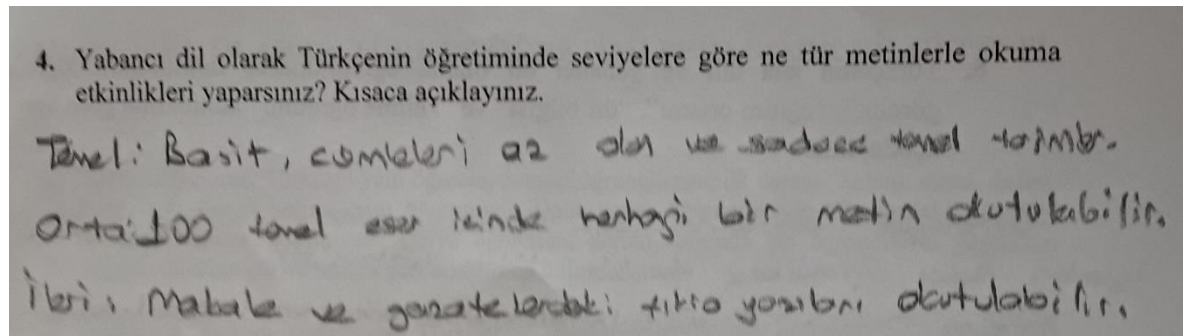 4. Yabancı dil olarak Türkçenin öğretiminde seviyelere göre ne tür metinlerle okuma
etkinlikleri yaparsınız? Kısaca açıklayınız.
Temel: Basit, cümleleri az olan ve sadece temel
Orta: 100 temel eser içinde herhagi bir metin okutulabilir.
İleri: Makale ve gazatelerdeki fıkra yazıları okutulabilir.